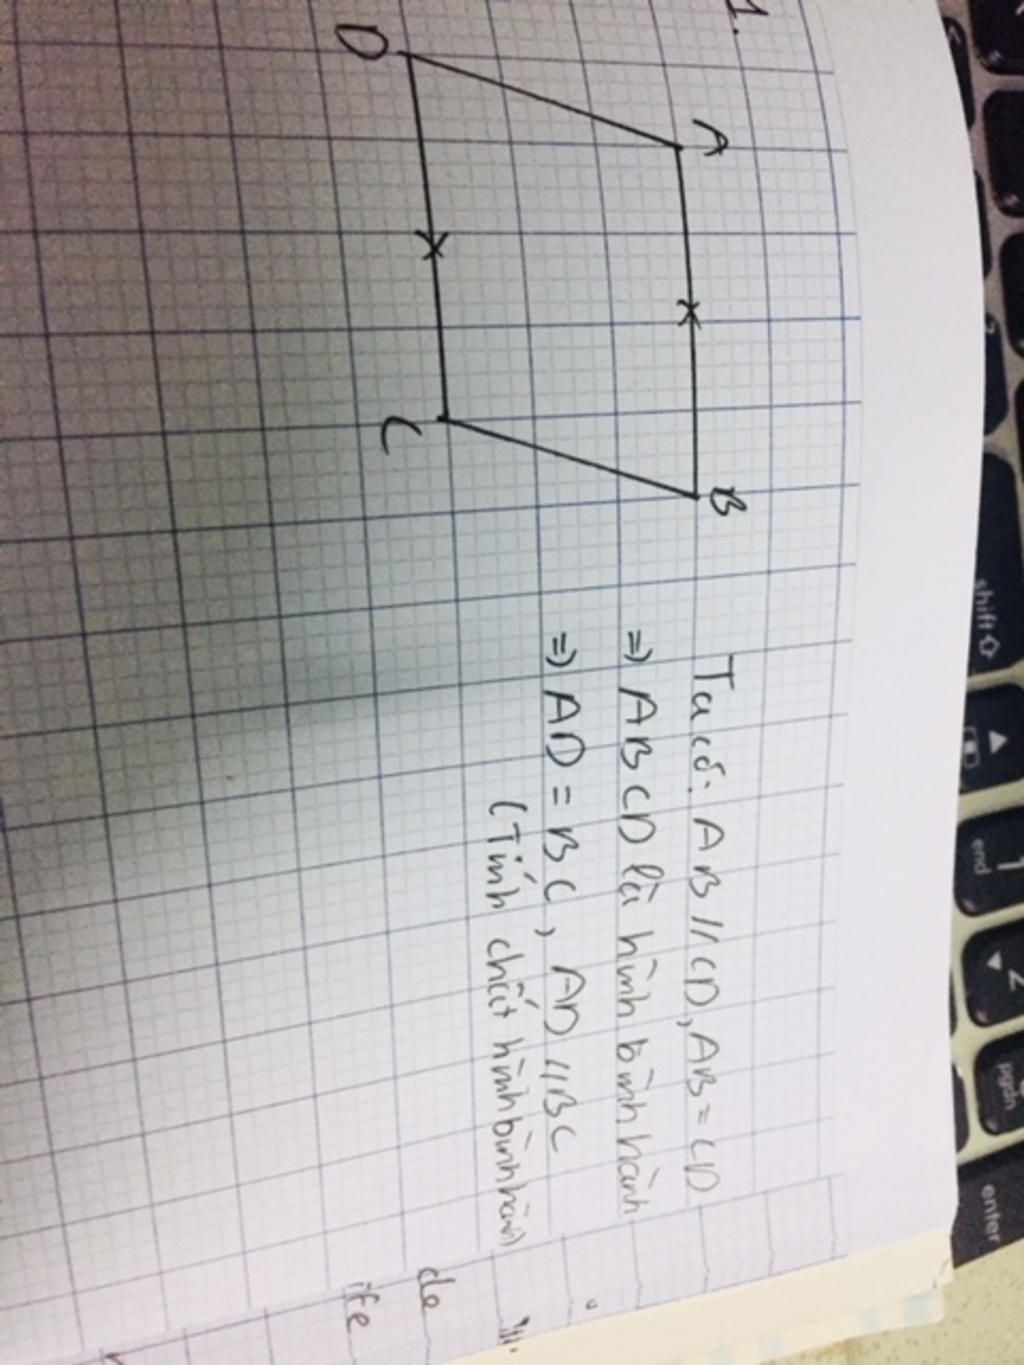 1.
A
B
D
C
Ta có: AB // CD, AB = CD
=) ABCD là hình bình hành
=) AD = BC, AD // BC
(Tính chất hình bình hành)
de
ife
shift
end
1
2
pgdn
enter